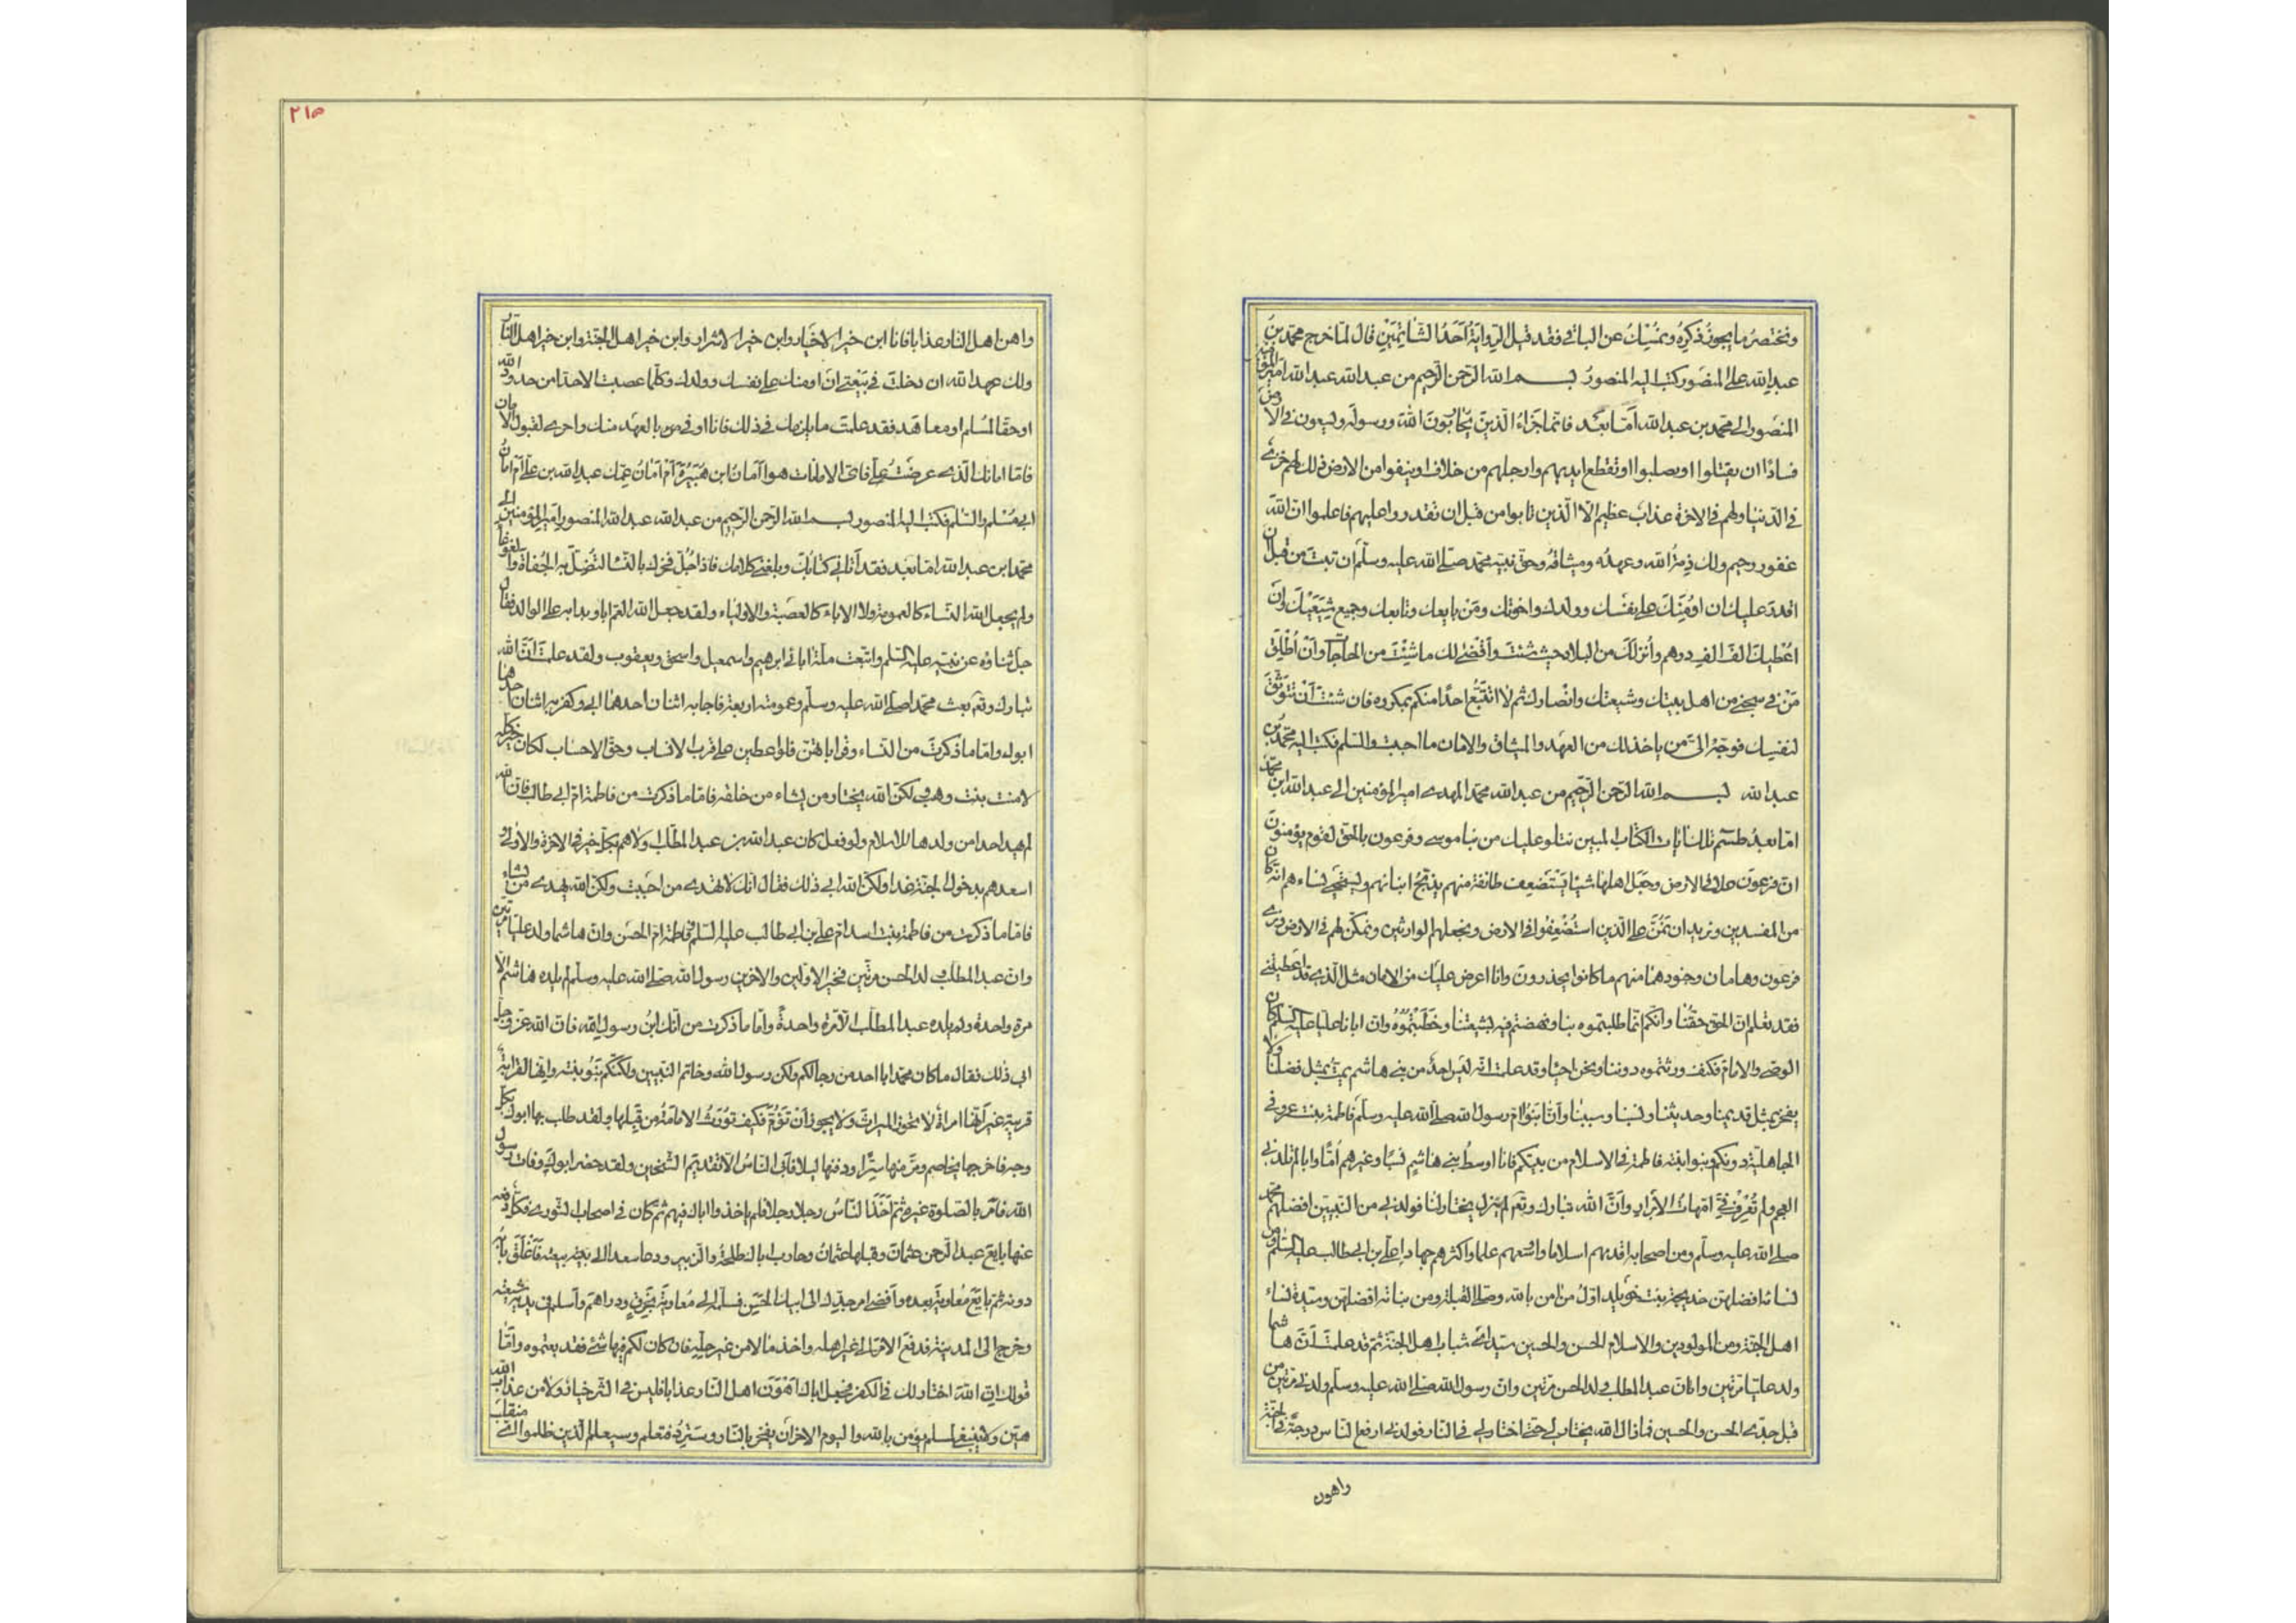 ونختصر ما يجوز ذكره ونمسك عن الباقي فقد قيل الرواية أحد الشاتمين قال لما خرج محمد بن
عبد الله على المنصور كتب اليه المنصور بسم الله الرحمن الرحيم من عبد الله عبد الله امير المؤمنين
المنصور الى محمد بن عبد الله أما بعد فانما جزاء الذين يحاربون الله ورسوله ويسعون في الارض
فسادا ان يقتلوا او يصلبوا او تقطع ايديهم وارجلهم من خلاف او ينفوا من الارض ذلك لهم خزي
في الدنيا ولهم في الاخرة عذاب عظيم الا الذين تابوا من قبل ان تقدروا عليهم فاعلموا ان الله
غفور رحيم ولك ذمة الله وعهده وميثاقه وحق نبيه محمد صلى الله عليه وسلم ان تبت من قبل ان
اقدر عليك ان اؤمنك على نفسك وولدك واخوتك ومن بايعك وتابعك وجميع شيعتك وان
اعطيك الف الف درهم وأنزلك من البلاد حيث شئت وأقضي لك ما شئت من الحاجات وأن أطلق
من في سجني من اهل بيتك وشيعتك وانصارك ثم لا اتتبع احدا منكم بمكروه فان شئت أن تتوثق
لنفسك فوجه الي من ياخذ لك من العهد والميثاق والامان ما احببت والسلم فكتب اليه محمد بن
عبد الله بسم الله الرحمن الرحيم من عبد الله محمد المهدي امير المؤمنين الى عبد الله ابن محمد
اما بعد طسم تلك ايات الكتاب المبين نتلو عليك من نبا موسى وفرعون بالحق لقوم يؤمنون
ان فرعون علا في الارض وجعل اهلها شيعا يستضعف طائفة منهم يذبح ابنائهم ويستحيي نساءهم انه كان
من المفسدين ونريد ان نمن على الذين استضعفوا في الارض ونجعلهم الوارثين ونمكن لهم في الارض ونري
فرعون وهامان وجنودهما منهم ما كانوا يحذرون وانا اعرض عليك من الامان مثل الذي قد اعطيتني
فقد تعلم ان الحق حقنا وانكم انما طلبتموه بنا ونهضتم فيه بشيعتنا وخطبتموه وان ابانا عليا عليه السلم كان
الوصي والامام فكيف ورثتموه دوننا ونحن احياء وقد علمت انه ليس احد من بني هاشم يمت بمثل فضلنا ولا
يفخر بمثل قديمنا وحديثنا ونسبنا وسببنا وأنا بنو ام رسول الله صلى الله عليه وسلم فاطمة بنت عمرو في
الجاهلية دونكم وبنوا بنته فاطمة في الاسلام من بينكم فانا اوسط بني هاشم نسبا وخيرهم أما وابا لم تلدني
العجم ولم تعرف في امهات الأولاد وأن الله تبارك وتعالى لم يزل يختار لنا فولدني من النبيين افضلهم محمد
صلى الله عليه وسلم ومن اصحابه اقدمهم اسلاما واوسعهم علما واكثرهم جهادا علي بن ابي طالب عليه السلم ومن
نسائه افضلهن خديجة بنت خويلد اول من امن بالله وصلى القبلة ومن بناته افضلهن وسيدة نساء
اهل الجنة ومن المولودين في الاسلام الحسن والحسين سيدا شباب اهل الجنة ثم قد علمت أن هاشما
ولد عليا مرتين وان عبد المطلب ولد الحسن مرتين وان رسول الله صلى الله عليه وسلم ولدني مرتين من
قبل جدي الحسن والحسين فما زال الله يختار لي حتى اختار لي في النار فولدني ارفع الناس درجة في الجنة
واهون
٢١٥
واهن اهل النار عذابا فانا ابن خير الاخيار وابن خير الاشرار وابن خير اهل الجنة وابن خير اهل النار
ولك عهد الله ان دخلت في بيعتي ان اومنك على نفسك وولدك وكلما عصبت الا حدا من حدود الله
او حقا لمسلم او معاهد فقد علمت ما يلزمك في ذلك فانا اوفى بالعهد منك واحرى لقبول الامان
فاما امانك الذي عرضت علي فاي الامانات هو أامان ابن هبيرة أم أمان عمك عبد الله بن علي أم امان
ابي مسلم والسلم فكتب اليه المنصور بسم الله الرحمن الرحيم من عبد الله عبد الله المنصور امير المؤمنين الى
محمد ابن عبد الله اما بعد فقد أتاني كتابك وبلغني كلامك فاذا جل فخرك بالنساء لتضل به الجفاة والغوغا
ولم يجعل الله النساء كالعمومة ولا الاباء كالعصبة والاولياء ولقد جعل الله العم ابا وبدا به على الوالد فقال
جل ثناؤه عن نبيه عليه السلم واتبعت ملة ابائي ابرهيم واسمعيل واسحق ويعقوب ولقد علمت أن الله
تبارك وتعالى بعث محمدا صلى الله عليه وسلم وعمومته اربعة فاجابه اثنان احدهما ابي وكفر به اثنان احدهما
ابوك واما ما ذكرت من النساء وقراباتهن فلو اعطين على قرب الانساب وحق الاحساب لكان خير كله
لامنة بنت وهب ولكن الله يختار من يشاء من خلقه فاما ما ذكرت من فاطمة ام ابي طالب فان الله
لم يهد احدا من ولدها للاسلام ولو فعل كان عبد الله بن عبد المطلب اولاهم بكل خير في الاخرة والاولى و
اسعدهم بدخول الجنة غدا ولكن الله ابى ذلك فقال انك لا تهدي من احببت ولكن الله يهدي من يشاء
فاما ما ذكرت من فاطمة بنت اسد ام علي بن ابي طالب عليه السلم وفاطمة ام الحسن وان هاشما ولد عليا مرتين
وان عبد المطلب ولد الحسن مرتين فخير الاولين والاخرين رسول الله صلى الله عليه وسلم لم يلده هاشم الا
مرة واحدة ولم يلده عبد المطلب الا مرة واحدة واما ما ذكرت من أنك ابن رسول الله فان الله عز وجل
ابى ذلك فقال ما كان محمد ابا احد من رجالكم ولكن رسول الله وخاتم النبيين ولكنكم بنو بنته وانها لقرابة
قريبة غير أنها امرأة لا تحوز الميراث ولا يجوز أن تؤم فكيف تورث الامامة من قبلها ولقد طلب بها ابوك بكل
وجه فاخرجها تخاصم ومرضها سرا ودفنها ليلا فأبى الناس الا تقديم الشيخين ولقد حضر ابوك وفات رسول
الله فأمر بالصلوة غيره ثم أخذ الناس رجلا رجلا فلم ياخذوا اباك فيهم ثم كان في اصحاب الشورى فكل دفعه
عنها بايع عبد الرحمن عثمان وقبلها عثمان وحارب اباك طلحة والزبير ودعا سعدا الى بيعته فأغلق بابه
دونه ثم بايع معاوية بعده وأفضى امر جدك الى ابيك الحسن فسلمه الى معاوية بخزف ودراهم وأسلم في يديه شيعته
وخرج الى المدينة فدفع الامر الى غير اهله واخذ مالا من غير حله فان كان لكم فيها شئ فقد بعتموه وأما
قولك ان الله اختار لك في الكفر فجعل اباك أهون اهل النار عذابا فليس في الشر خيار ولا من عذاب الله
هين ولا ينبغي لمسلم يؤمن بالله واليوم الاخر أن يفخر بالنار وسترد فتعلم وسيعلم الذين ظلموا اي منقلب